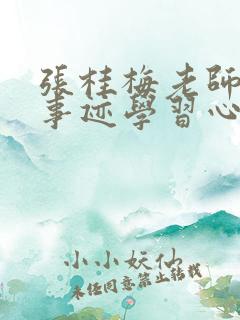 張桂梅老師
事迹學習心
小小妖仙
未经同意禁止转载